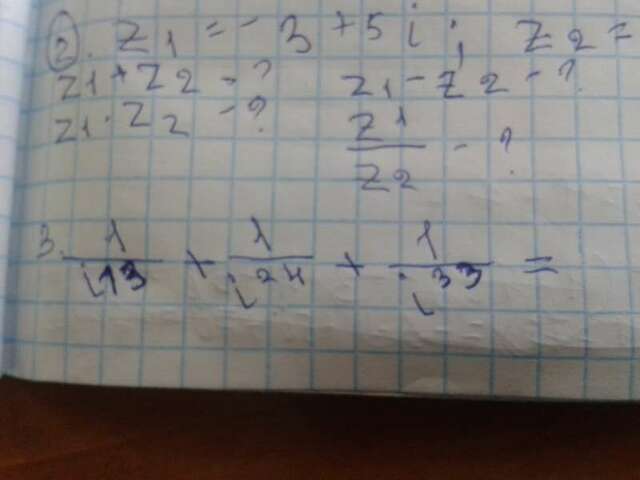 2. z1 = -3 + 5i; z2 =
z1 + z2 - ? z1 - z2 - ?
z1 · z2 - ? z1/z2 - ?
3. 1/i^13 + 1/i^24 + 1/i^33 =